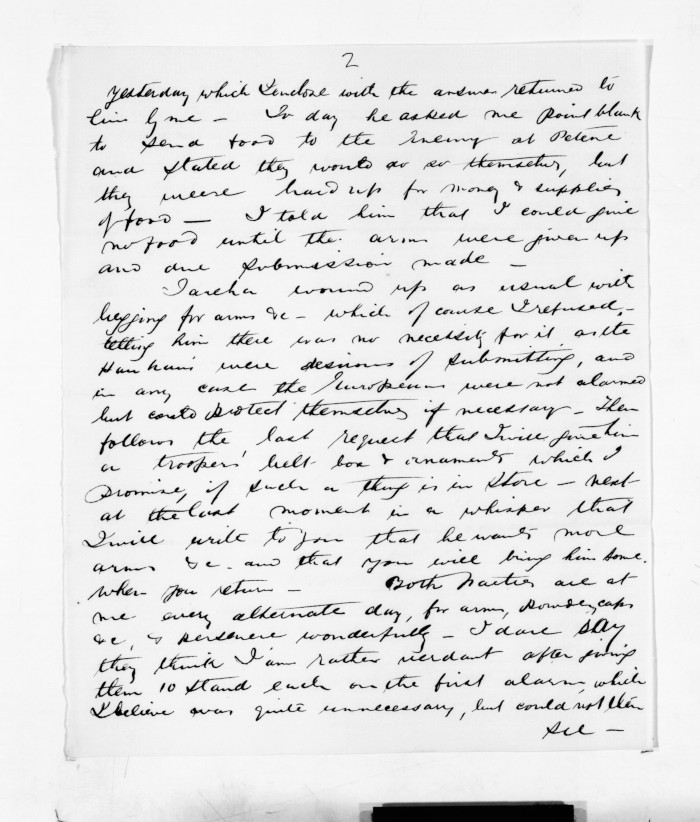 2
yesterday which I enclose with the answer returned to
him by me — To day he asked me point blank
to send food to the Enemy at Petane
and stated they would do so themselves, but
they weere hard up for money & supplies
of food — I told him that I could give
no food until the arms were given up
and due submission made —
Tareha wound up as usual with
begging for arms &c — which of course I refused, —
telling him there was no necessity for it as the
Hauhaus were desirous of submitting, and
in any case the Europeans were not alarmed
but could protect themselves if necessary — Then
follows the last request that I will give him
a troopers' belt-box & ornaments which I
promise, if such a thing is in Store — next
at the last moment in a whisper that
I will write to you that he wants more
arms &c. and that you will bring him some
when you return — Both Parties are at
me every alternate day, for arms, powder, caps
&c, & persevere wonderfully — I dare say
they think I am rather verdant after giving
them 10 stand each on the first alarm, which
I believe was quite unnecessary, but could not then
see —